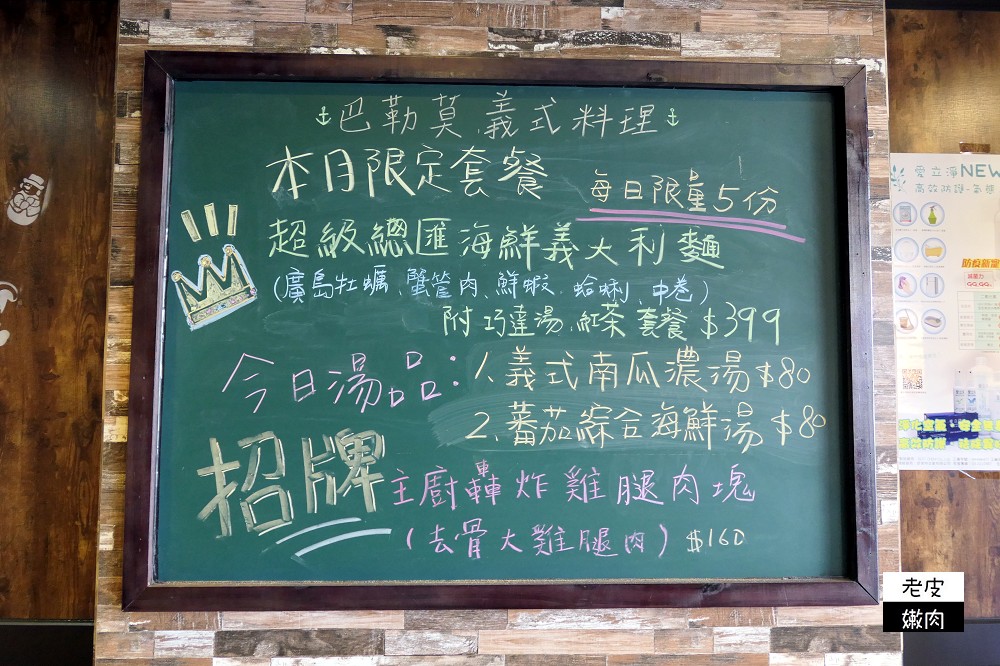 巴勒莫義式料理
本月限定套餐
每日限量5份
超級總匯海鮮義大利麵
(廣島牡蠣、蟹管肉、鮮蝦、蛤蜊、中卷)
附巧達湯、紅茶 套餐$399
今日湯品:1.義式南瓜濃湯$80
2.蕃茄綜合海鮮湯$80
招牌 主廚轟炸雞腿肉塊
(去骨大雞腿肉)$160
愛立淨NEW
老皮
嫩肉